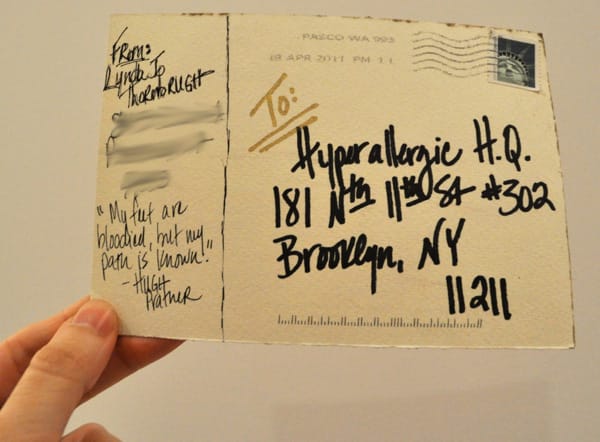 FROM:
Lynda Jo
THOROROUGH
"My feet are
bloodied, but my
path is known!"
- HUGH
Prather
PASCO WA 993
18 APR 2011 PM 1 L
To:
Hyperallergic H.Q.
181 Nth 11th St #302
Brooklyn, NY
11211